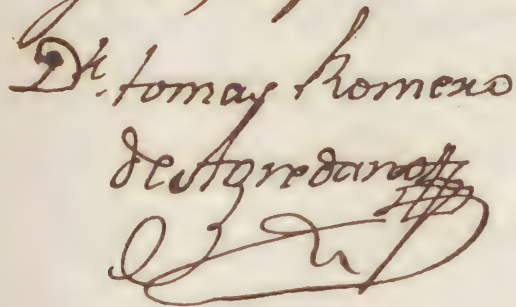 Dr. tomas Romero
de Agredano